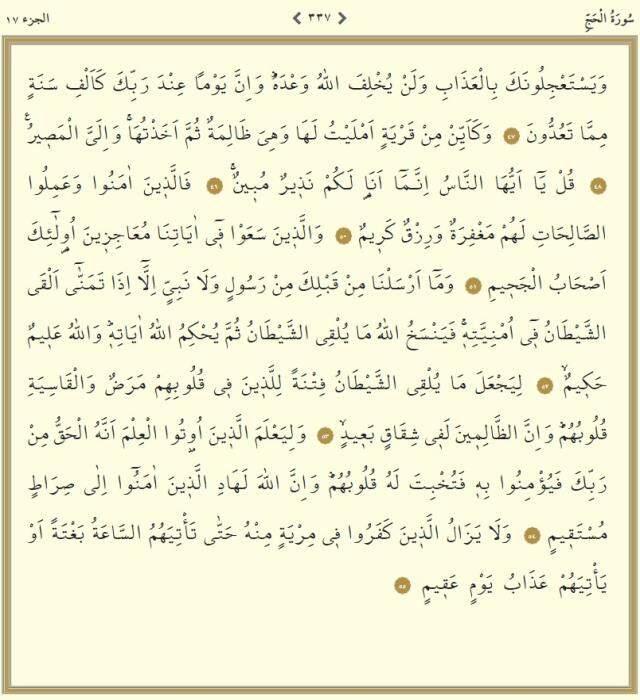 سُورَةُ الْحَجِّ ٣٣٧ الجزء ١٧
وَيَسْتَعْجِلُونَكَ بِالْعَذَابِ وَلَنْ يُخْلِفَ اللّٰهُ وَعْدَهُۜ وَاِنَّ يَوْمًا عِنْدَ رَبِّكَ كَاَلْفِ سَنَةٍ
مِمَّا تَعُدُّونَ ٤٧ وَكَاَيِّنْ مِنْ قَرْيَةٍ اَمْلَيْتُ لَهَا وَهِيَ ظَالِمَةٌ ثُمَّ اَخَذْتُهَاۚ وَاِلَيَّ الْمَص۪يرُ۟
٤٨ قُلْ يَٓا اَيُّهَا النَّاسُ اِنَّمَٓا اَنَا۬ لَكُمْ نَذ۪يرٌ مُب۪ينٌۚ ٤٩ فَالَّذ۪ينَ اٰمَنُوا وَعَمِلُوا
الصَّالِحَاتِ لَهُمْ مَغْفِرَةٌ وَرِزْقٌ كَر۪يمٌ ٥٠ وَالَّذ۪ينَ سَعَوْا ف۪ٓي اٰيَاتِنَا مُعَاجِز۪ينَ اُو۬لٰٓئِكَ
اَصْحَابُ الْجَح۪يمِ ٥١ وَمَٓا اَرْسَلْنَا مِنْ قَبْلِكَ مِنْ رَسُولٍ وَلَا نَبِيٍّ اِلَّٓا اِذَا تَمَنّٰىٓ اَلْقَى
الشَّيْطَانُ ف۪ٓي اُمْنِيَّتِه۪ۚ فَيَنْسَخُ اللّٰهُ مَا يُلْقِي الشَّيْطَانُ ثُمَّ يُحْكِمُ اللّٰهُ اٰيَاتِه۪ۜ وَاللّٰهُ عَل۪يمٌ
حَك۪يمٌۙ ٥٢ لِيَجْعَلَ مَا يُلْقِي الشَّيْطَانُ فِتْنَةً لِلَّذ۪ينَ ف۪ي قُلُوبِهِمْ مَرَضٌ وَالْقَاسِيَةِ
قُلُوبُهُمْۜ وَاِنَّ الظَّالِم۪ينَ لَف۪ي شِقَاقٍ بَع۪يدٍۙ ٥٣ وَلِيَعْلَمَ الَّذ۪ينَ اُو۫تُوا الْعِلْمَ اَنَّهُ الْحَقُّ مِنْ
رَبِّكَ فَيُؤْمِنُوا بِه۪ فَتُخْبِتَ لَهُ قُلُوبُهُمْۜ وَاِنَّ اللّٰهَ لَهَادِ الَّذ۪ينَ اٰمَنُٓوا اِلٰى صِرَاطٍ
مُسْتَق۪يمٍ ٥٤ وَلَا يَزَالُ الَّذ۪ينَ كَفَرُوا ف۪ي مِرْيَةٍ مِنْهُ حَتّٰى تَأْتِيَهُمُ السَّاعَةُ بَغْتَةً اَوْ
يَأْتِيَهُمْ عَذَابُ يَوْمٍ عَق۪يمٍ ٥٥